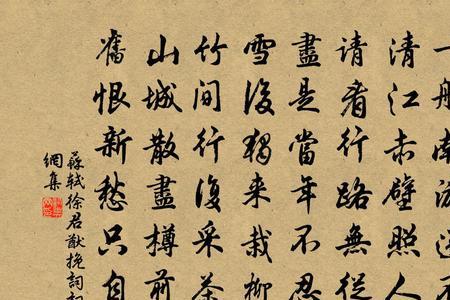 一南
清江赤壁照人
請看行路無從
盡是當年不忍
雪後獨来栽柳
竹間行復采茶
山城散盡樽前
舊恨新愁只自
蘇軾徐君猷挽詞
網集